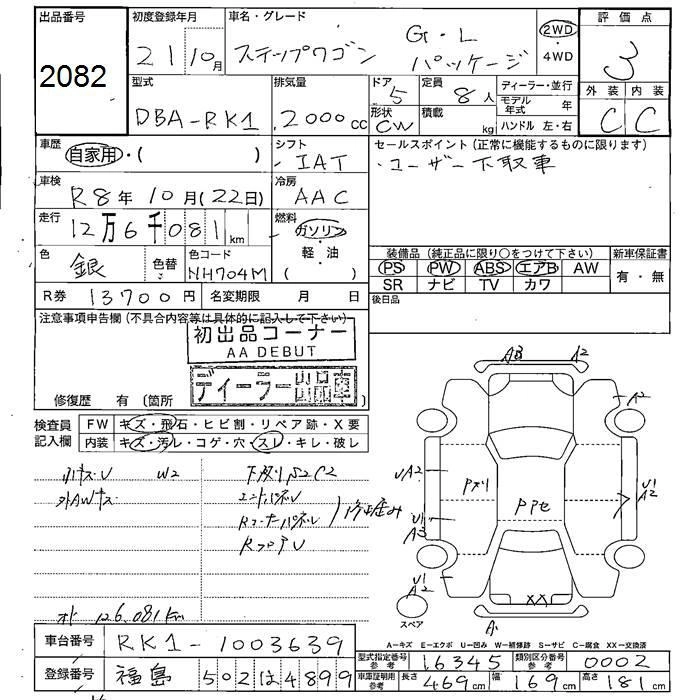 出品番号
2082
初度登録年月
21 10月
車名・グレード
ステップワゴン G・L パッケージ
2WD・4WD
評価点
3
外装 内装
C C
型式
DBA-RK1
排気量
2000cc
ドア
5
形状
CW
定員
8人
積載
kg
ディーラー・並行
モデル年式 年
ハンドル 左・右
車歴
自家用・( )
シフト
IAT
セールスポイント(正常に機能するものに限ります)
・ユーザー下取車
車検
R8年10月(22日)
冷房
AAC
走行
12万6千081km
燃料
ガソリン・軽・油( )
色
銀
色替
色コード
NH704M
装備品(純正品に限り○をつけて下さい)
PS PW ABS エアB AW
SR ナビ TV カワ
新車保証書
有・無
R券 13700円
名変期限 月 日
後日品
注意事項申告欄(不具合内容等は具体的に記入して下さい)
初出品コーナー
AA DEBUT
ディーラー出品車
修復歴 有(箇所 )
検査員記入欄
FW キズ・飛石・ヒビ割・リペア跡・X要
内装 キズ・汚レ・コゲ・穴・スレ・キレ・破レ
W2
下廻りS2C2
外AWキズ
エンドパネルU
RコーナーパネルU
RフロアU
126,081km
A3 A2
A2
UA2
U1
A3
U1
A2
U1
A2
XX
A
スペア
A-キズ E-エクボ U-凹み W-補修跡 S-サビ C-腐食 XX-交換済
車台番号 RK1-1003639
登録番号 福島 502は4899
型式指定番号 参考 16345
類別区分番号 参考 0002
車庫証明用 参考 長さ 469cm 幅 169cm 高さ 181cm